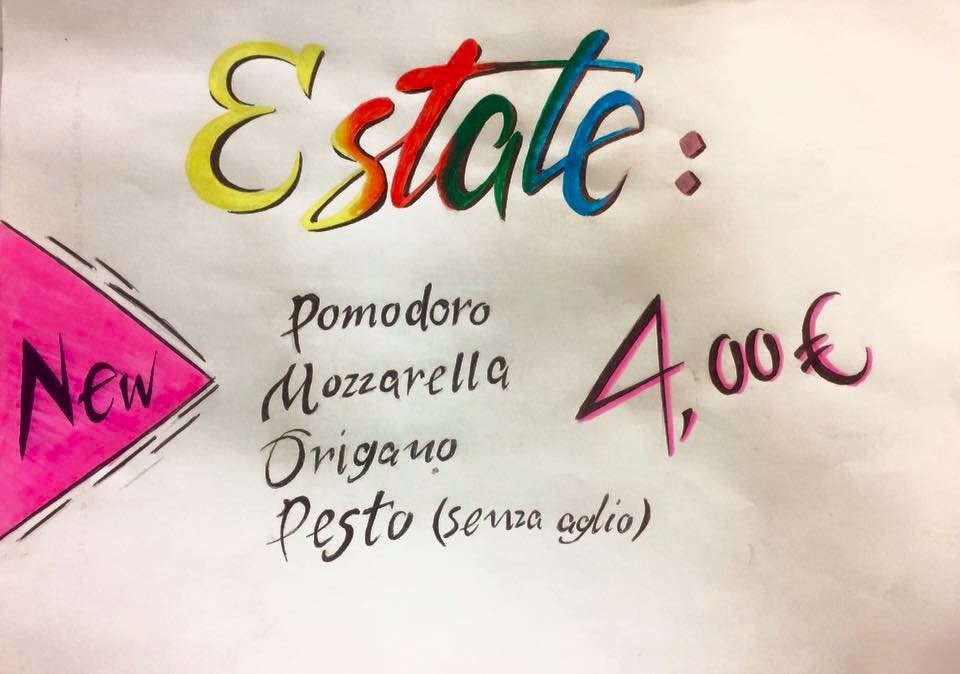 Estate:
New
Pomodoro
Mozzarella
Origano
Pesto (senza aglio)
4,00€